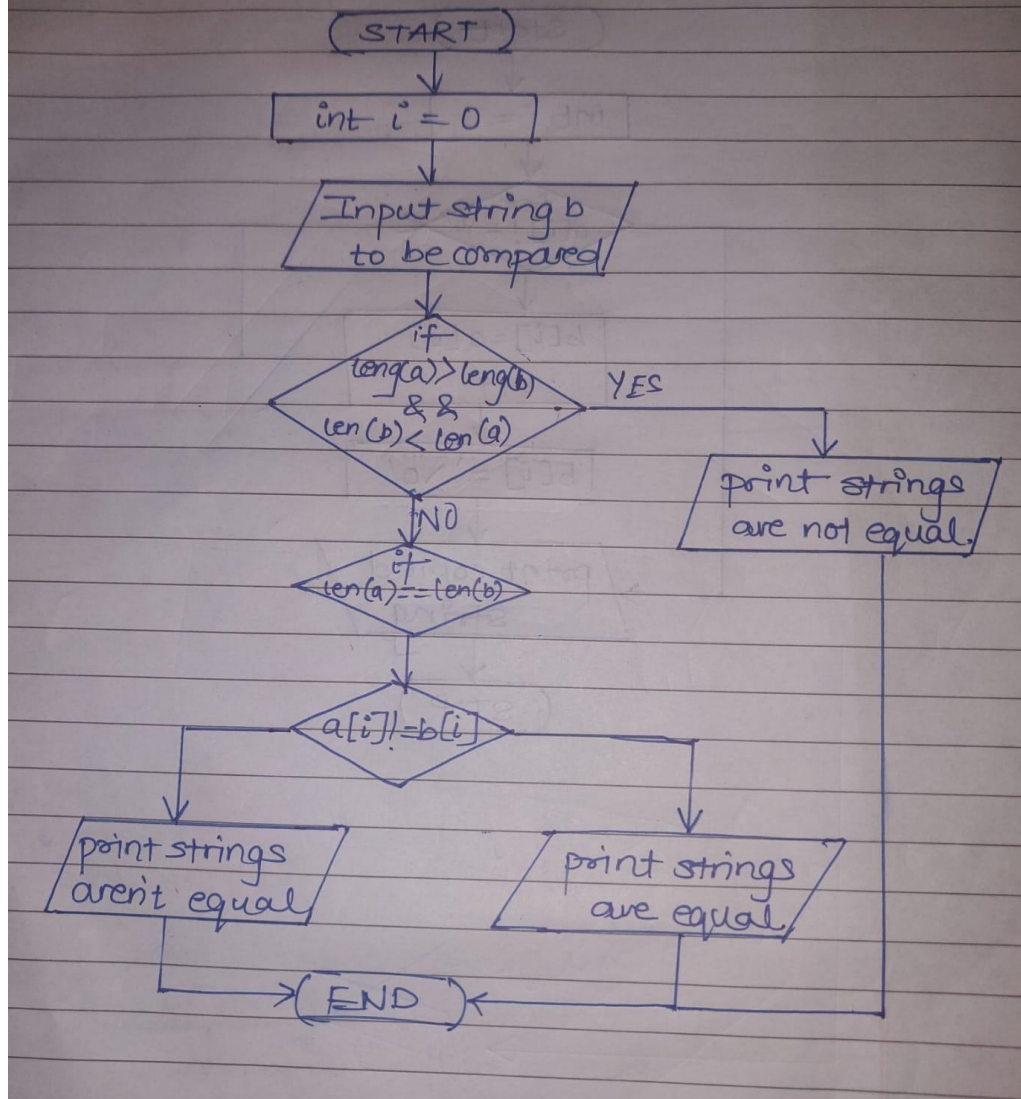 START
int i = 0
Input string b
to be compared
if
leng(a)>leng(b)
&&
len(b)<len(a)
YES
print strings
are not equal.
NO
if
len(a)==len(b)
a[i]!=b[i]
print strings
aren't equal
print strings
are equal
END